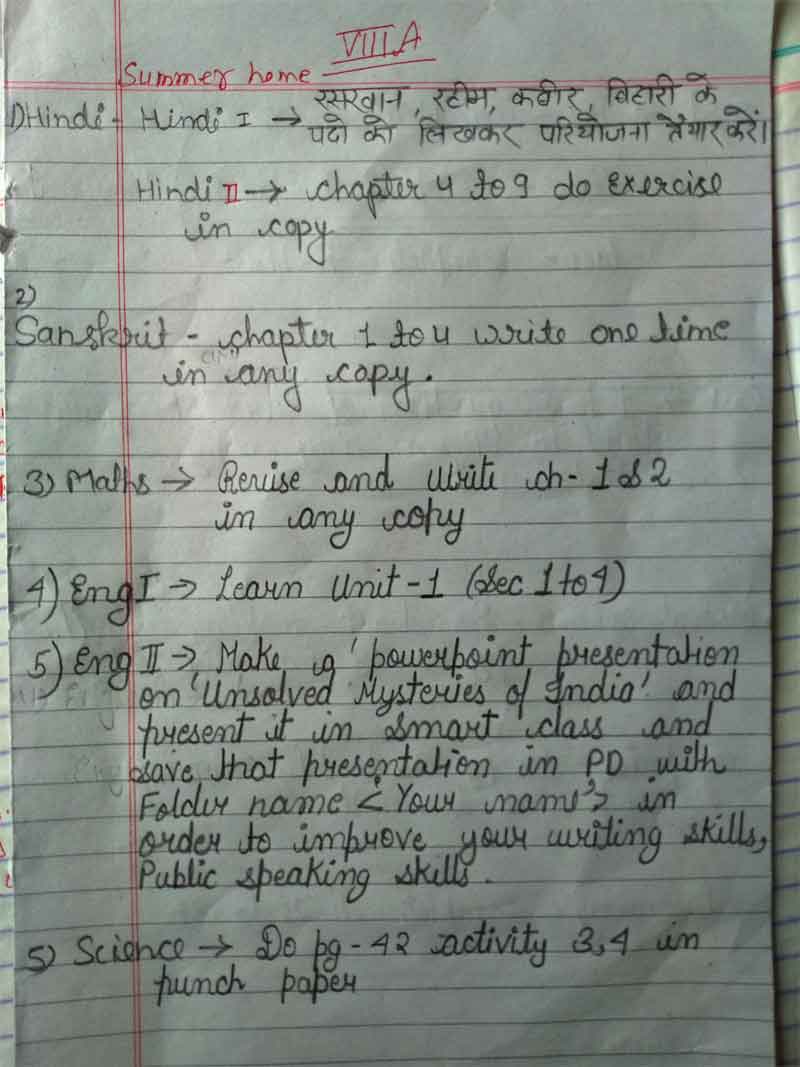 VIII A
Summer home
1) Hindi - Hindi I → रसखान, रहीम, कबीर, बिहारी के
पदो को लिखकर परियोजना तैयार करें।
Hindi II → chapter 4 to 9 do exercise
in copy
2)
Sanskrit - chapter 1 to 4 write one time
in any copy.
3) Maths → Revise and write ch- 1 & 2
in any copy
4) Eng I → Learn Unit -1 (Sec 1 to 4)
5) Eng II → Make a powerpoint presentation
on 'Unsolved Mysteries of India' and
present it in smart class and
save that presentation in PD with
Folder name <Your name> in
order to improve your writing skills,
Public speaking skills.
5) Science → Do pg - 42 activity 3,4 in
punch paper